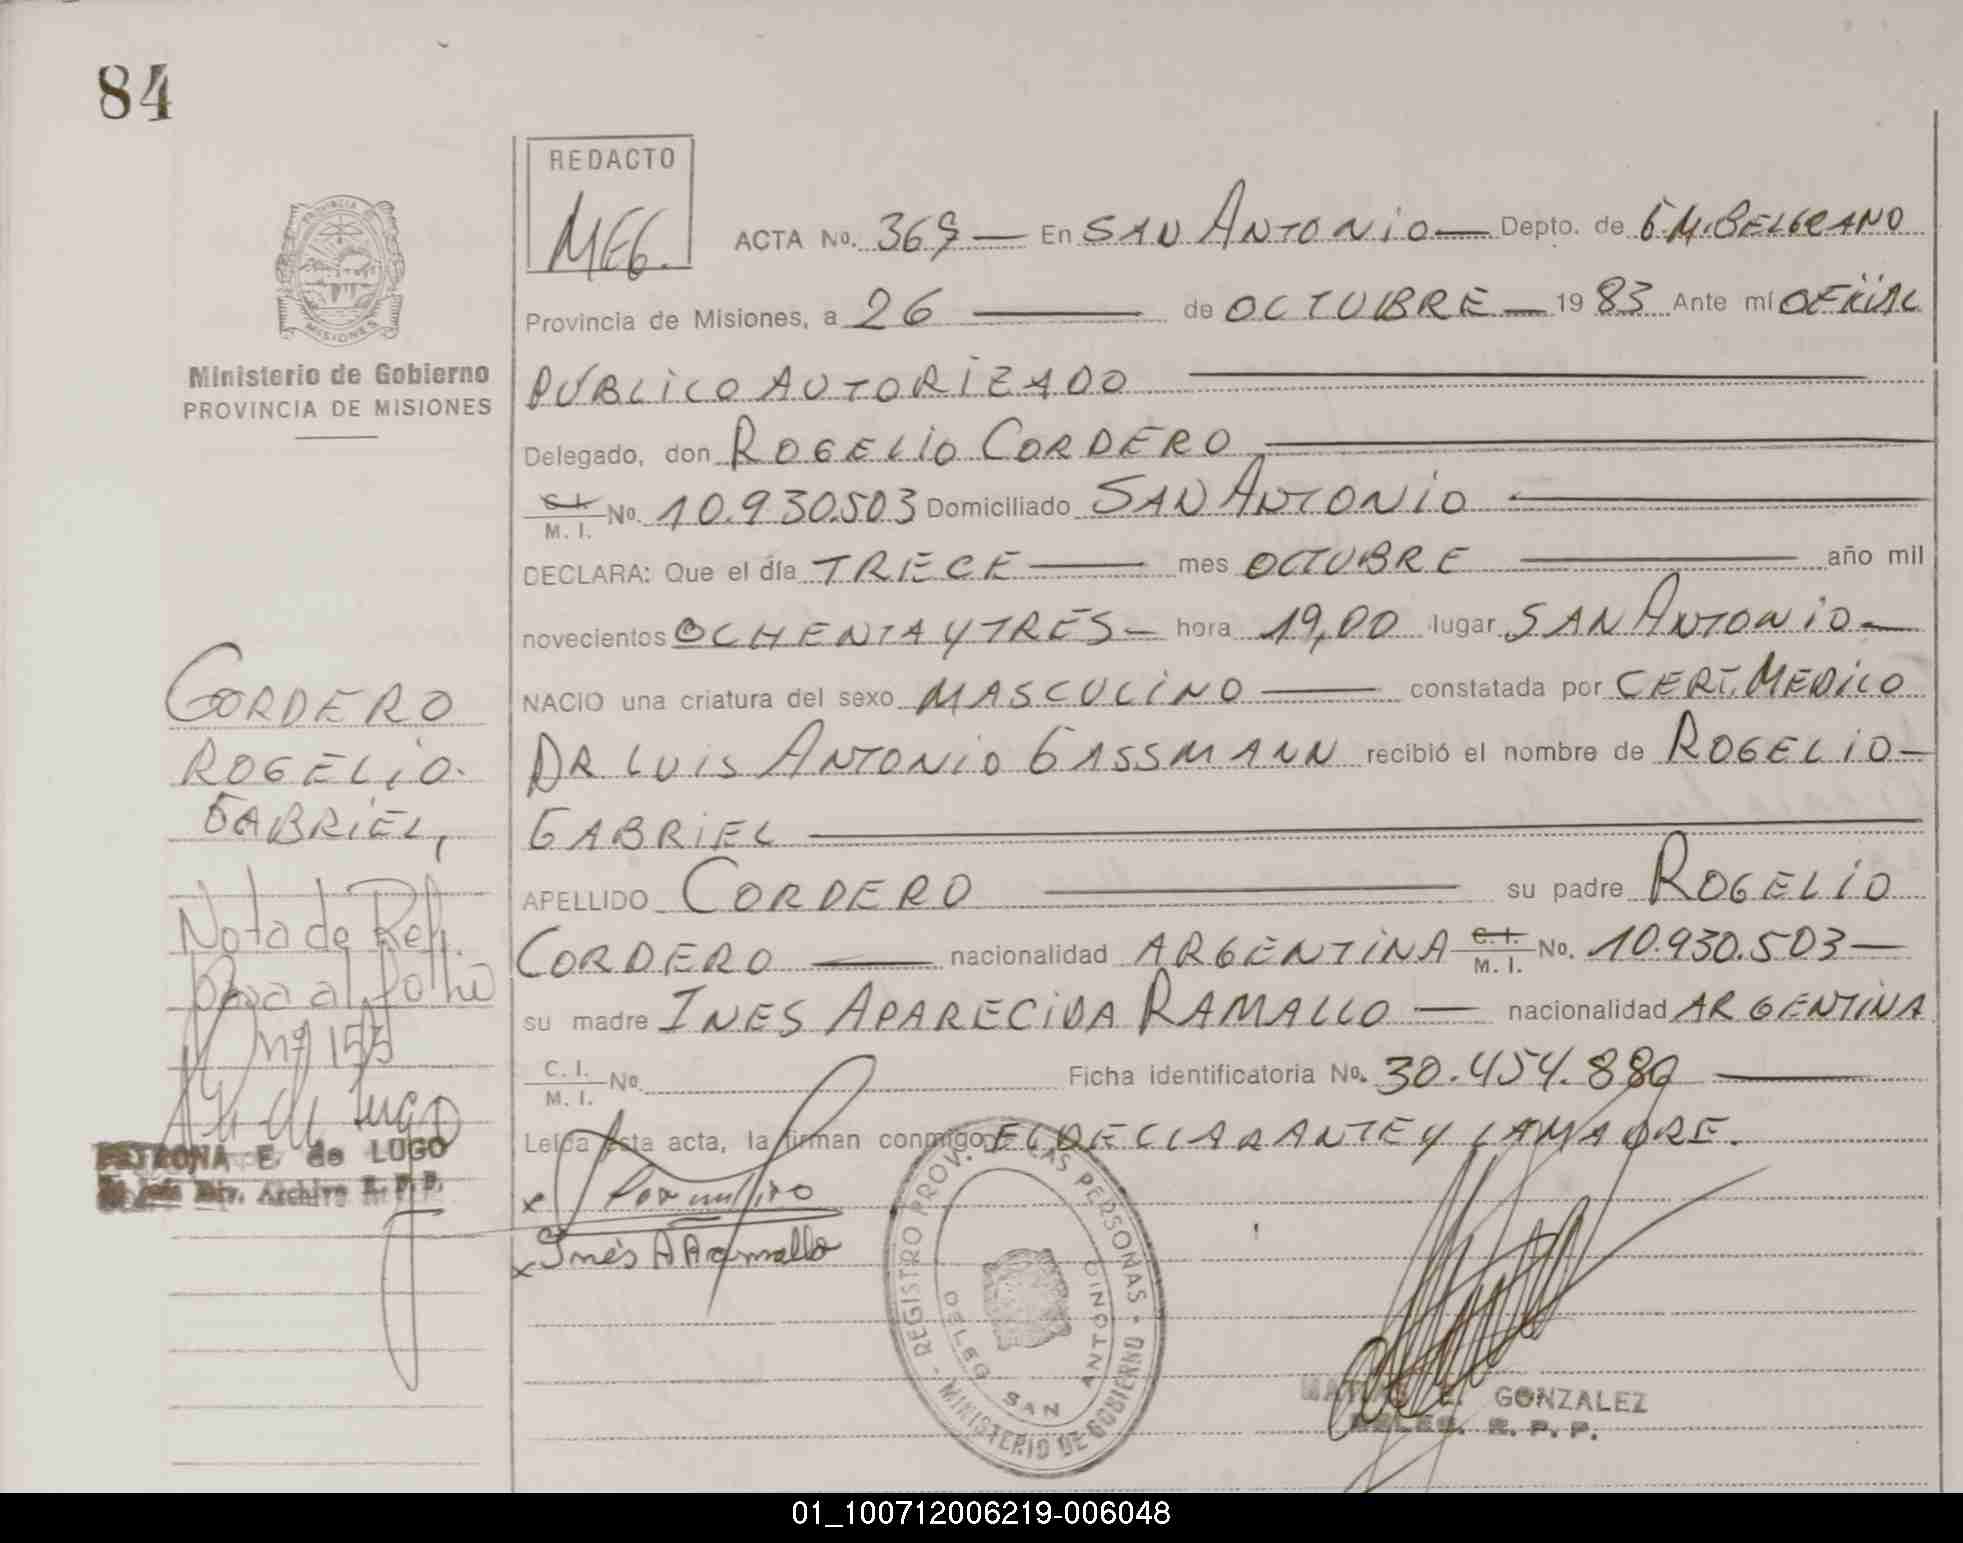 84
REDACTO
MEG.
PROVINCIA DE
MISIONES
Ministerio de Gobierno
PROVINCIA DE MISIONES
ACTA No. 369 — En SAN ANTONIO — Depto. de G.M. BELGRANO
Provincia de Misiones, a 26 — de OCTUBRE — 1983 Ante mí OFICIAL
PÚBLICO AUTORIZADO —
Delegado, don ROGELIO CORDERO —
C.I. M. I. No. 10.930.503 Domiciliado SAN ANTONIO —
DECLARA: Que el día TRECE — mes OCTUBRE — año mil
novecientos OCHENTA Y TRES — hora 19,00 lugar SAN ANTONIO —
NACIO una criatura del sexo MASCULINO — constatada por CERT. MEDICO
DR LUIS ANTONIO GASSMANN recibió el nombre de ROGELIO —
GABRIEL —
APELLIDO CORDERO — su padre ROGELIO
CORDERO — nacionalidad ARGENTINA C.I. M. I. No. 10.930.503 —
su madre INES APARECIDA RAMALLO — nacionalidad ARGENTINA
C. I. M. I. No. Ficha identificatoria No. 30.454.880 —
Leída esta acta, la firman conmigo EL DECLARANTE Y LA MADRE.
x
x Inés A Ramallo
CORDERO
ROGELIO
GABRIEL,
Nota de Ref.
Pasa al folio
nº 153
PETRONA E. de LUGO
Div. Archivo R. P. P.
REGISTRO PROV. DE LAS PERSONAS - MINISTERIO DE GOBIERNO -
DELEG SAN ANTONIO
E. GONZALEZ
DELEG. R. P. P.
01_100712006219-006048